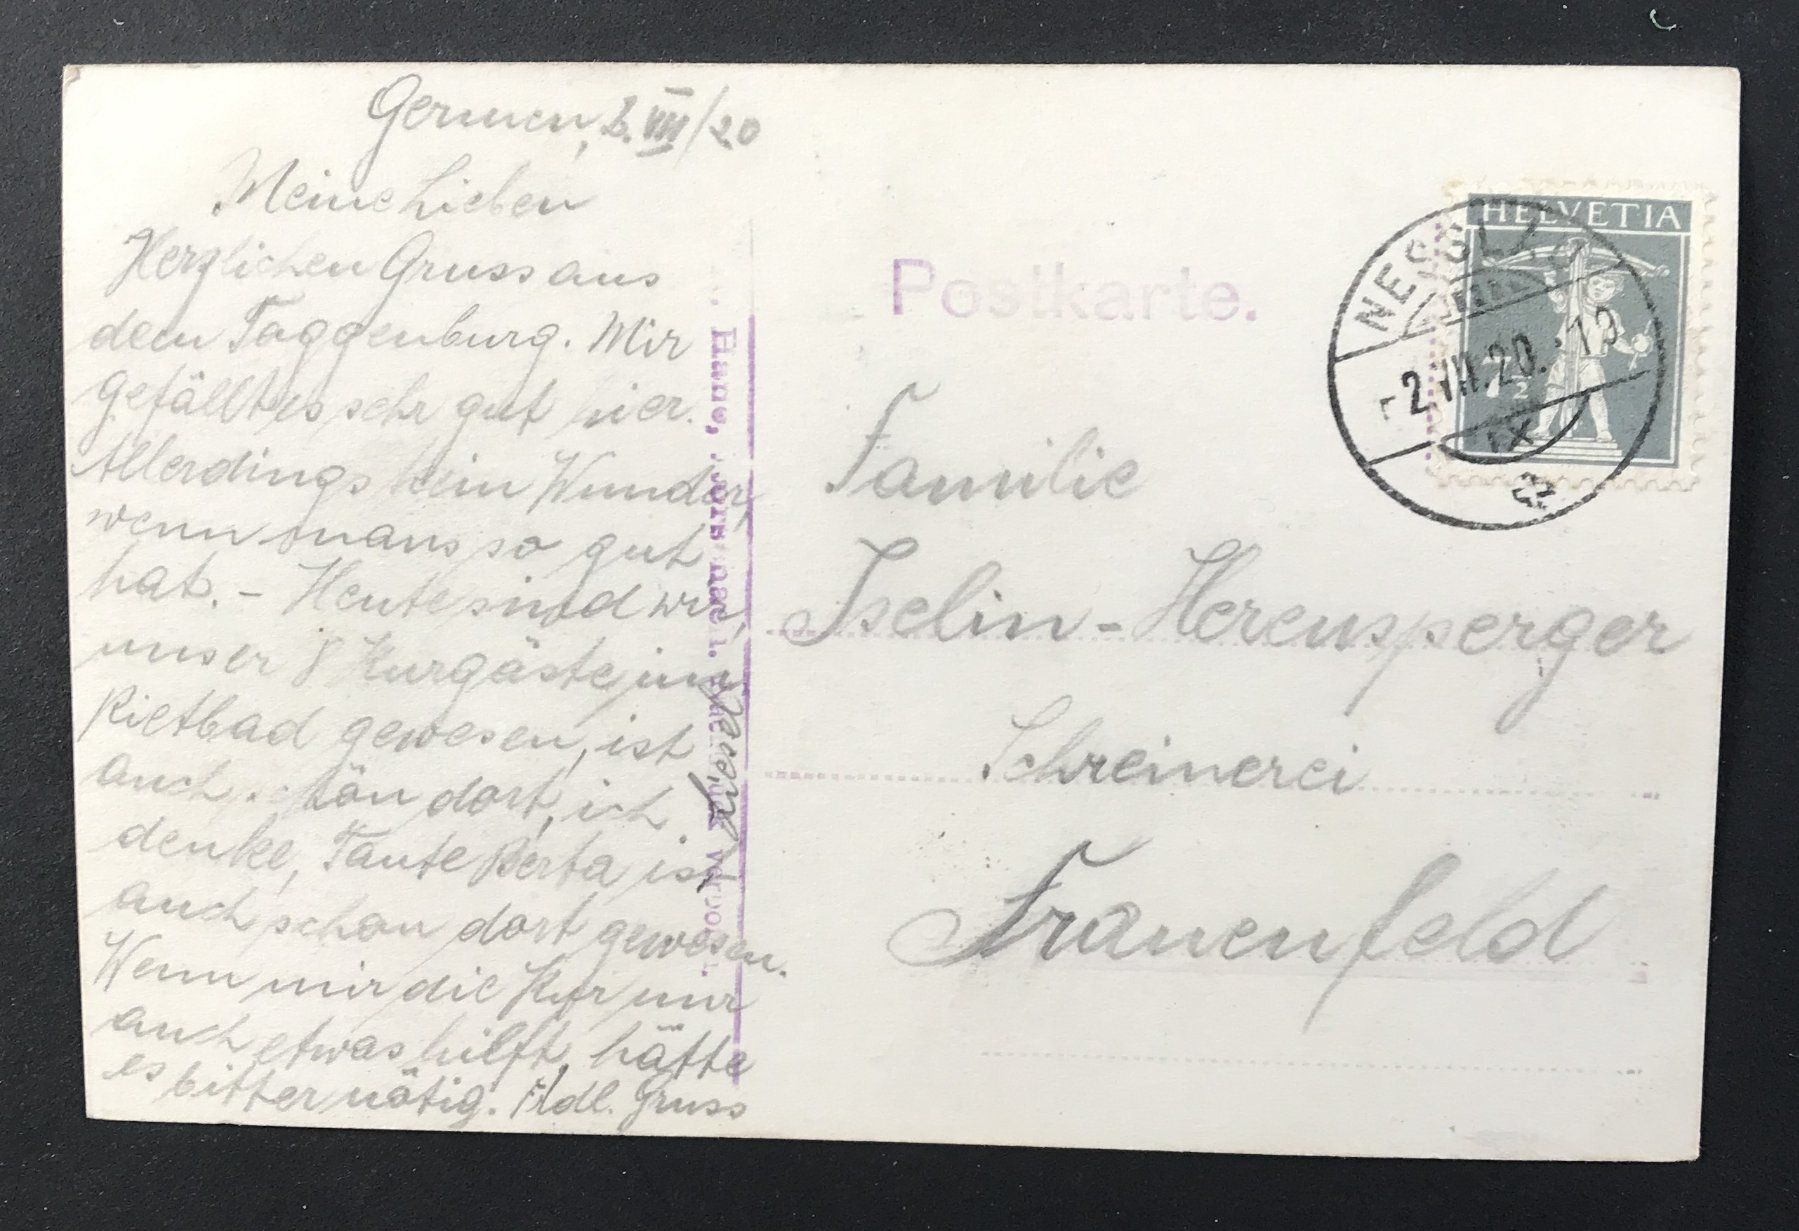 Germen, 2. VIII/20
Meine Lieben
Herzlichen Gruss aus
dem Toggenburg. Mir
gefällt es sehr gut hier.
Allerdings kein Wunder,
wenn mans so gut
hat. - Heute sind wir,
unser 8 Kurgäste im
Rietbad gewesen, ist
auch schön dort, ich
denke, Tante Berta ist
auch schon dort gewesen.
Wenn mir die Kur nur
auch etwas hilft, hätte
es bitter nötig. Frdl. Gruss
Postkarte.
HELVETIA
7½
2.VIII.20.
Familie
Iselin-Herensperger
Schreinerei
Frauenfeld